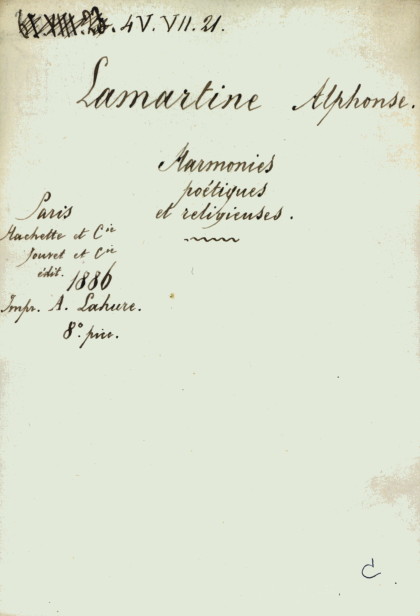 4V.VII.21.
Lamartine Alphonse.
Harmonies
poétiques
et religieuses.
Paris
Hachette et Cie
Jouvet et Cie
édit.
1886
Impr. A. Lahure.
8º. picc.
C